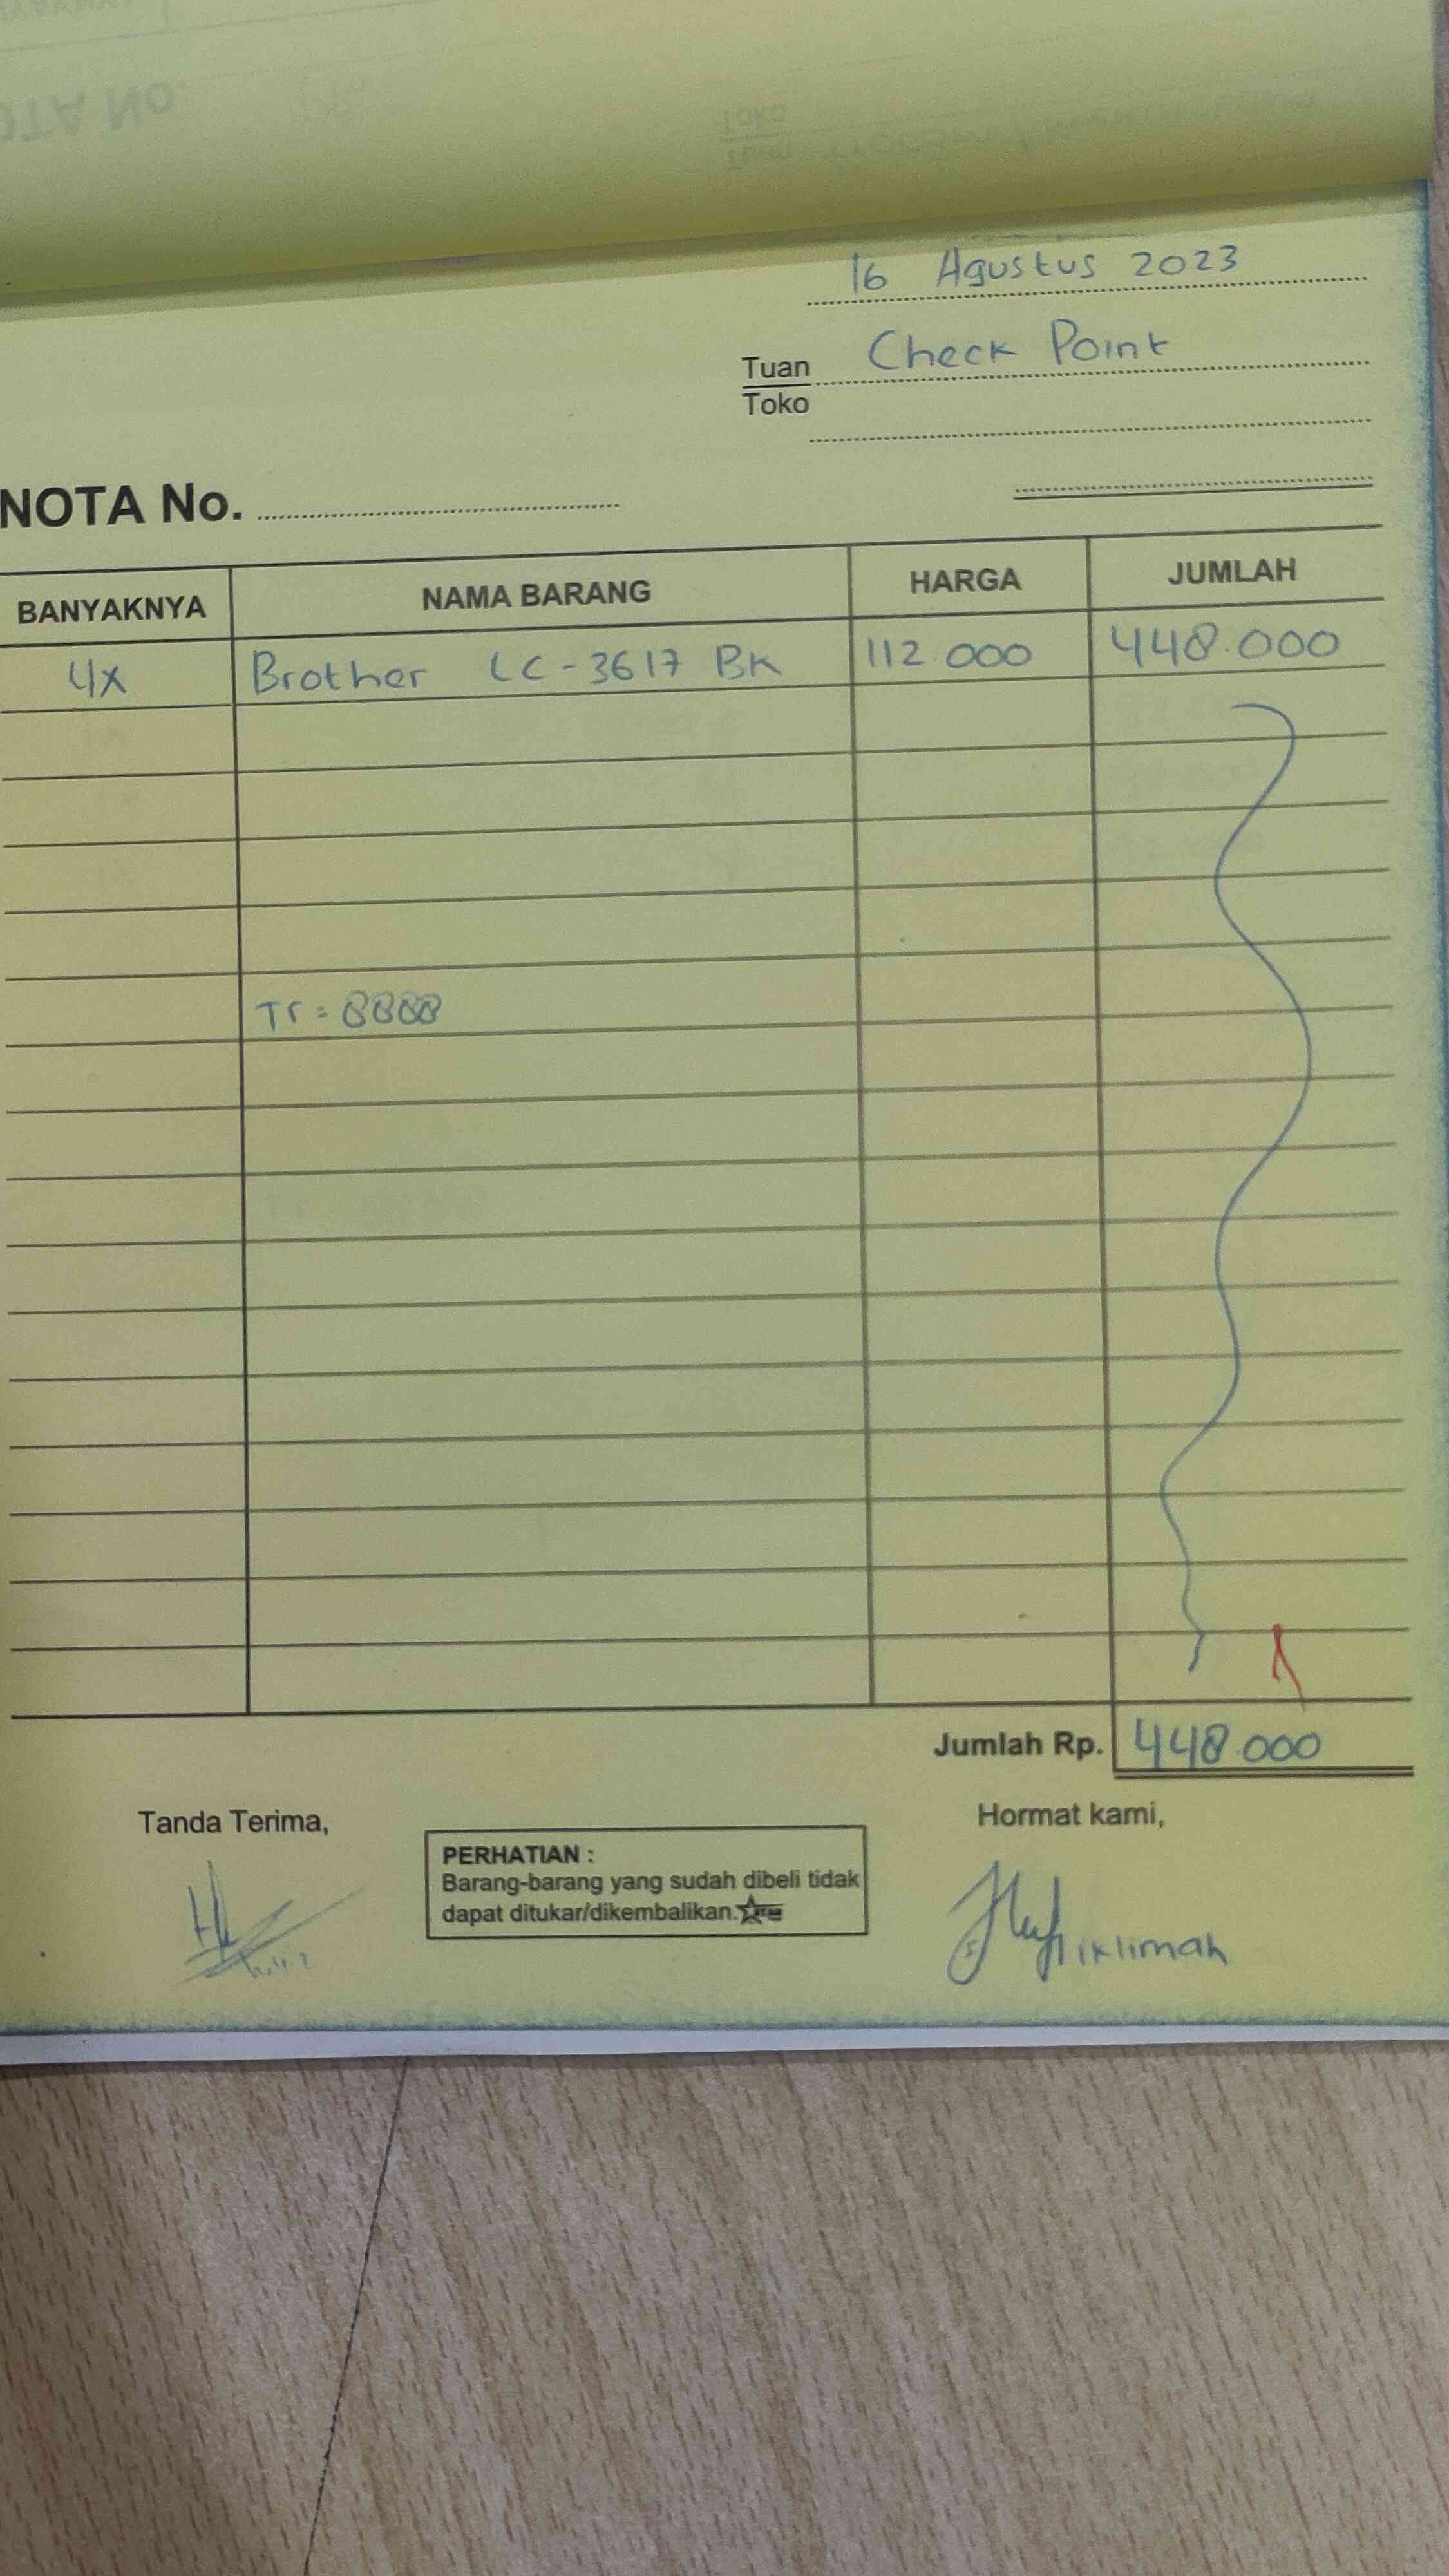 16 Agustus 2023
Tuan Check Point
Toko
NOTA No.
BANYAKNYA NAMA BARANG HARGA JUMLAH
4x Brother LC-3617 BK 112.000 448.000
Tr = 8888
Jumlah Rp. 448.000
Tanda Terima, Hormat kami,
PERHATIAN :
Barang-barang yang sudah dibeli tidak
dapat ditukar/dikembalikan.
iklimah